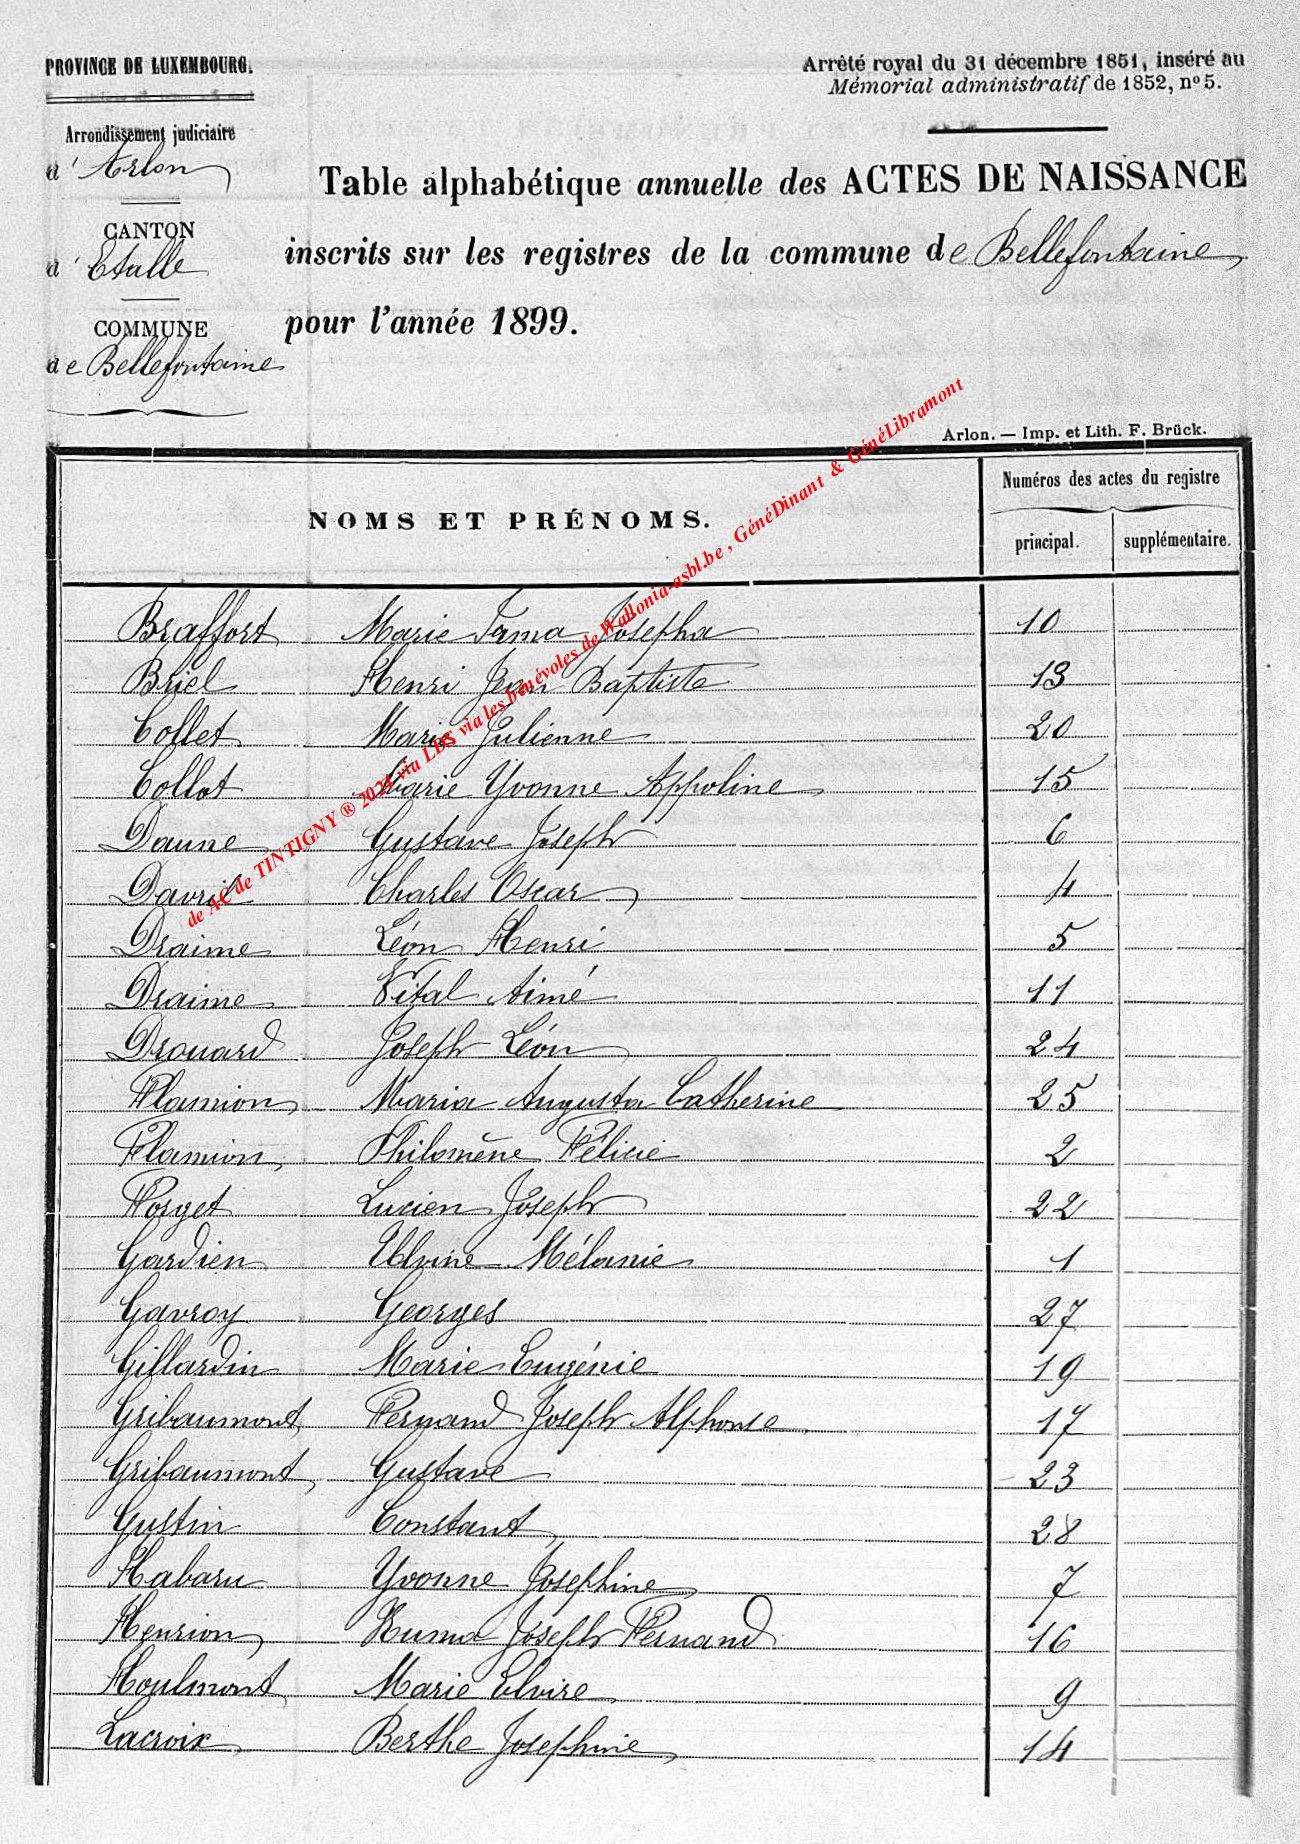 PROVINCE DE LUXEMBOURG.
Arrêté royal du 31 décembre 1851, inséré au
Mémorial administratif de 1852, nº 5.
Arrondissement judiciaire
d' Arlon
CANTON
d' Etalle
COMMUNE
de Bellefontaine
Table alphabétique annuelle des ACTES DE NAISSANCE
inscrits sur les registres de la commune de Bellefontaine
pour l'année 1899.
Arlon. — Imp. et Lith. F. Brück.
NOMS ET PRÉNOMS.
Numéros des actes du registre
principal. supplémentaire.
Braffort Marie Josepha 10
Briel Henri Jean Baptiste 13
Collet Maria Julienne 20
Collot Marie Yvonne Appoline 15
Daune Gustave Joseph 6
Davril Charles Oscar 4
Draime Léon Henri 5
Draime Vital Aimé 11
Drouard Joseph Léon 24
Flamion Maria Augusta Catherine 25
Flamion Philomène Félicie 2
Forget Lucien Joseph 22
Gardien Mélanie 1
Gavroy Georges 27
Gillardin Marie Eugénie 19
Gribaumont Fernand Joseph Alphonse 17
Gribaumont Gustave 23
Gustin Constant 28
Habaru Yvonne Josephine 7
Henrion Numa Joseph Fernand 16
Houlmont Marie Elvire 9
Lacroix Berthe Josephine 14
de AC de TINTIGNY ® 2024 via LDS via les bénévoles de Wallonia-asbl.be , GénéDinant & GénéLibramont